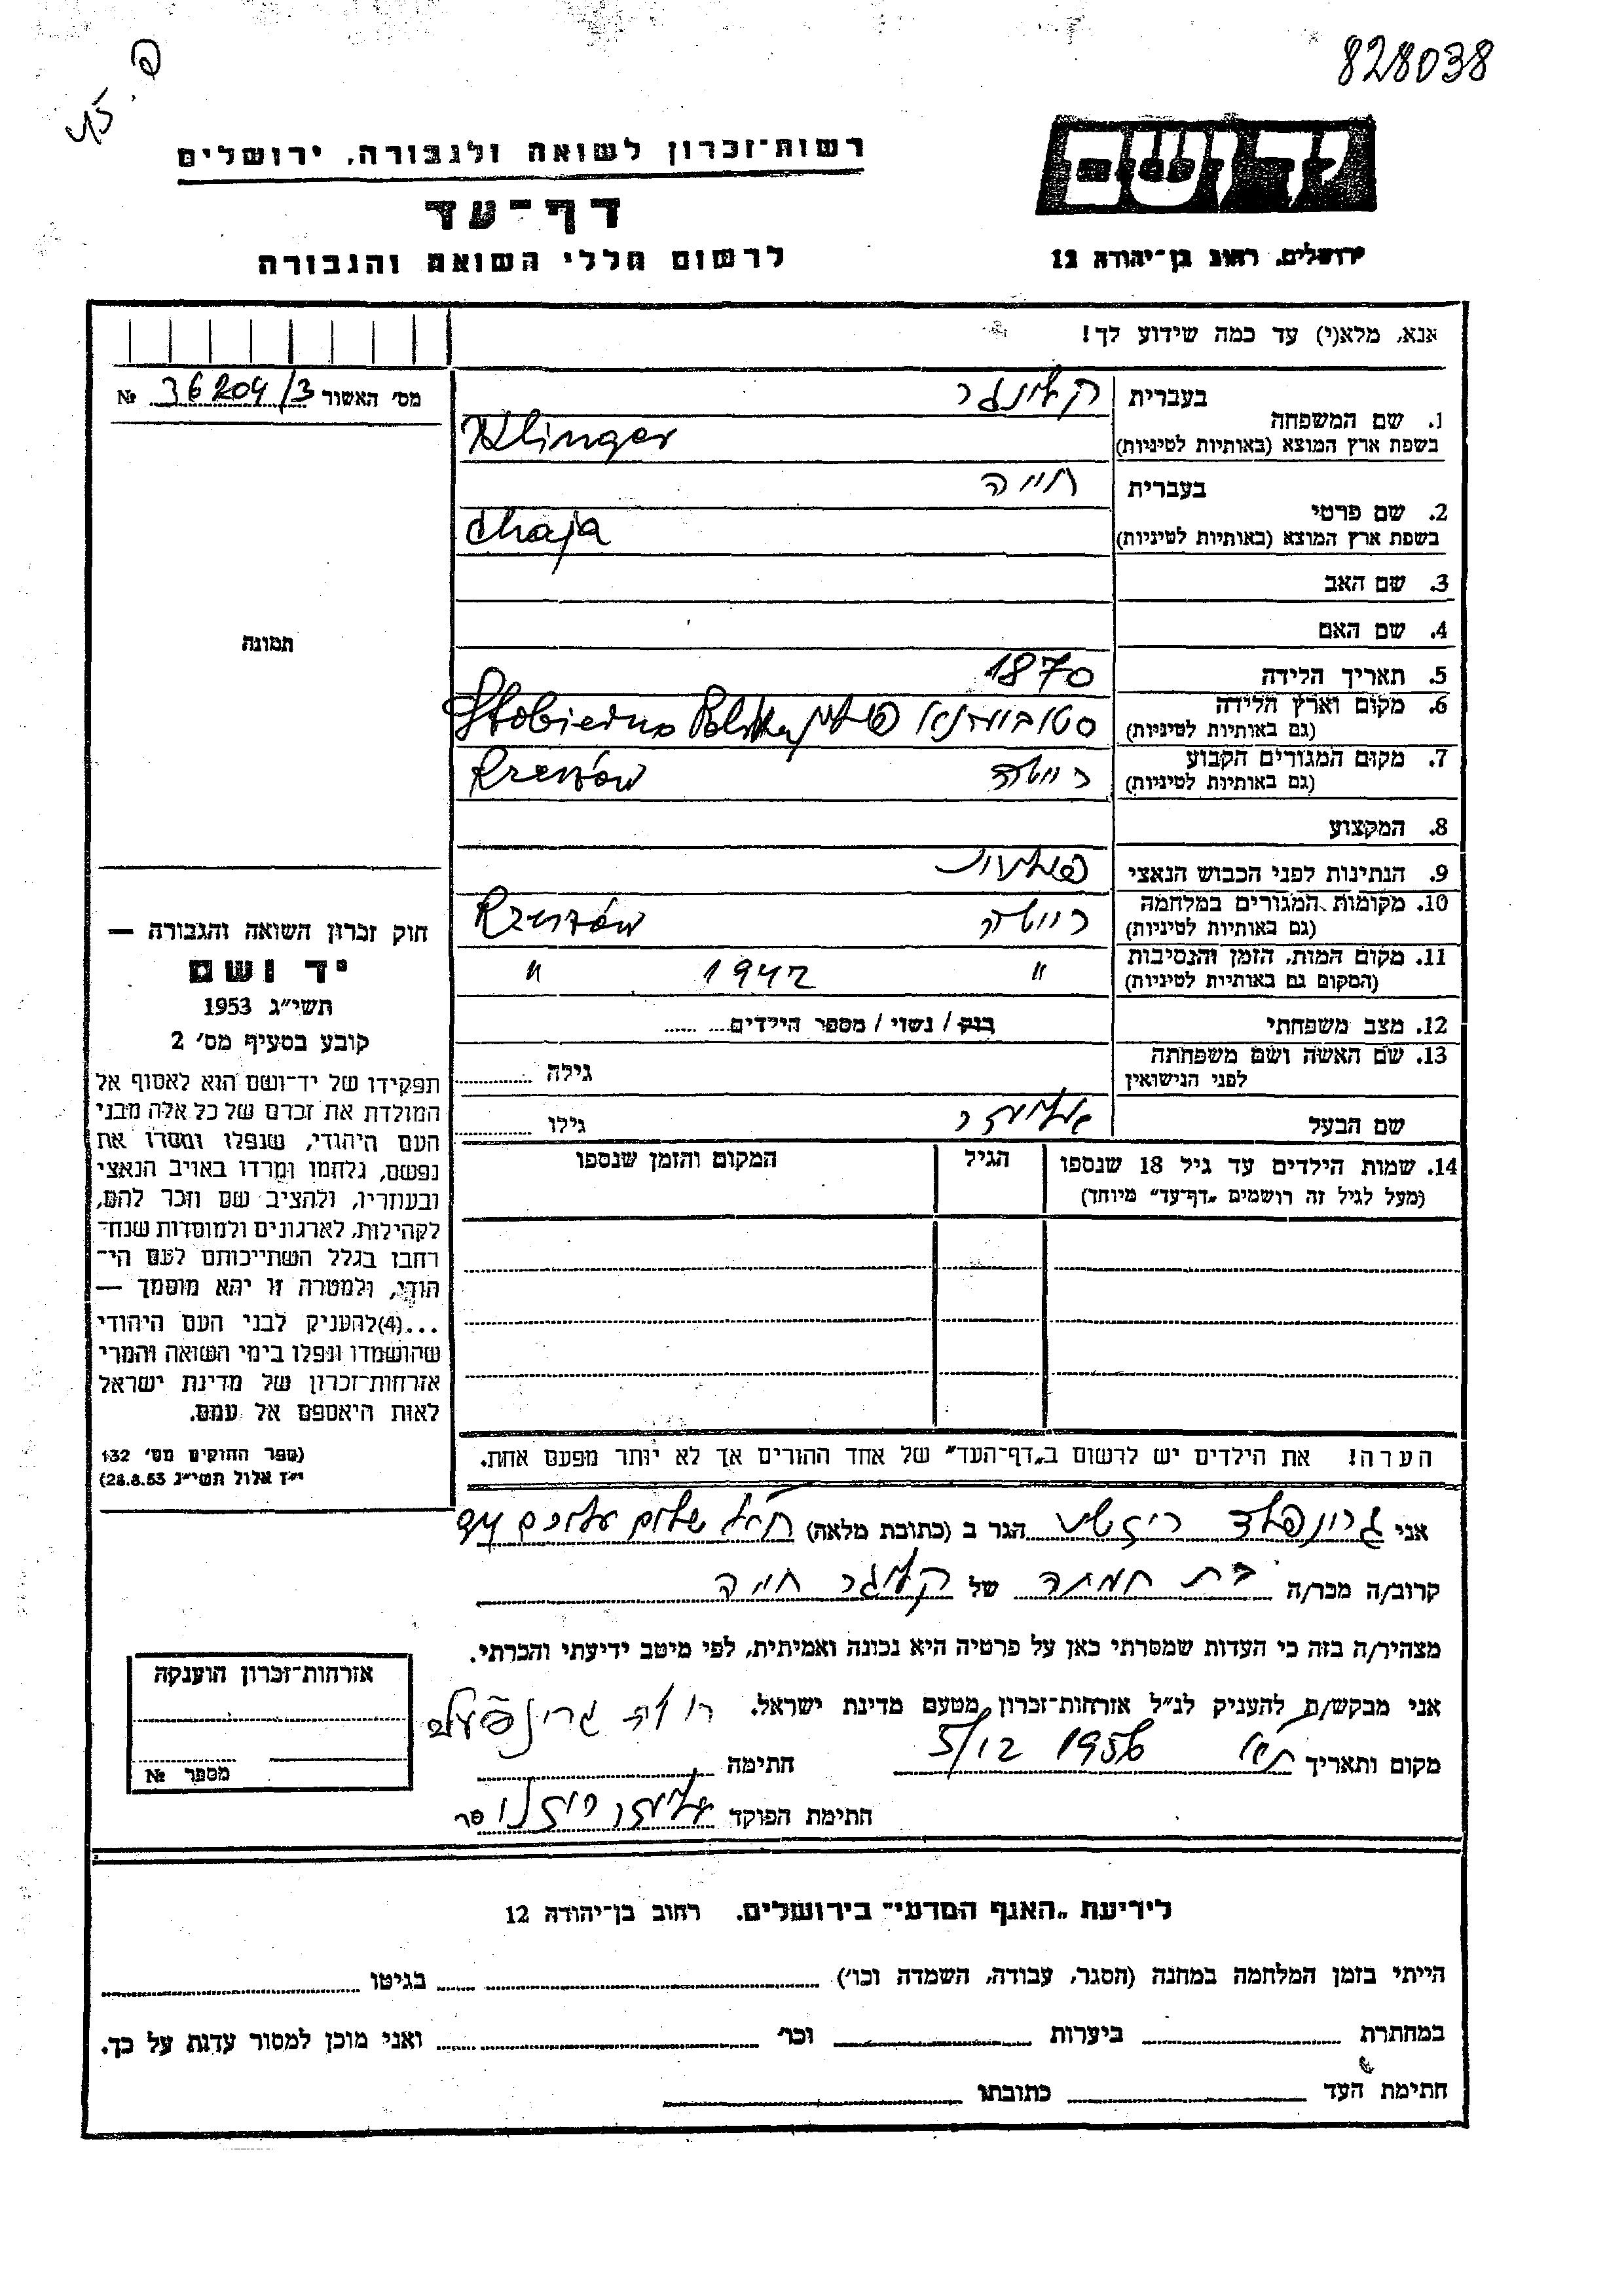 828038
רשות־זכרון לשואה ולגבורה, ירושלים
דף־עד
לרשום חללי השואה והגבורה
יד ושם
ירושלים, רחוב בן־יהודה 12
אנא, מלא(י) עד כמה שידוע לך!
מס׳ האשור 36204/3 №
תמונה
1. שם המשפחה בעברית קלינגר
בשפת ארץ המוצא (באותיות לטיניות) Klinger
2. שם פרטי בעברית חייה
בשפת ארץ המוצא (באותיות לטיניות) Chaja
3. שם האב
4. שם האם
5. תאריך הלידה 1870
6. מקום וארץ הלידה
(גם באותיות לטיניות) סטוביערנא פולין Stobierna Polska
7. מקום המגורים הקבוע
(גם באותיות לטיניות) ריישה Rzeszów
8. המקצוע
9. הנתינות לפני הכבוש הנאצי פולנית
10. מקומות המגורים במלחמה
(גם באותיות לטיניות) ריישה Rzeszów
11. מקום המות, הזמן והנסיבות
(המקום גם באותיות לטיניות) " 1942 "
12. מצב משפחתי רווק / נשוי / מספר הילדים
13. שם האשה ושם משפחתה
לפני הנישואין גילה
שם הבעל אליעזר גילו
14. שמות הילדים עד גיל 18 שנספו
(מעל לגיל זה רושמים „דף־עד" מיוחד)
הגיל
המקום והזמן שנספו
חוק זכרון השואה והגבורה —
יד ושם
תשי״ג 1953
קובע בסעיף מס׳ 2
תפקידו של יד־ושם הוא לאסוף אל
המולדת את זכרם של כל אלה מבני
העם היהודי, שנפלו ומסרו את
נפשם, נלחמו ומרדו באויב הנאצי
ובעוזריו, ולהציב שם וזכר להם,
לקהילות, לארגונים ולמוסדות שנח־
רחבו בגלל השתייכותם לעם הי־
הודי, ולמטרה זו יהא מוסמך —
...(4)להעניק לבני העם היהודי
שהושמדו ונפלו בימי השואה והמרי
אזרחות־זכרון של מדינת ישראל
לאות היאספם אל עמם.
(ספר החוקים מס׳ 132
י״ז אלול תשי״ג 28.8.53)
הערה! את הילדים יש לרשום ב„דף־העד" של אחד ההורים אך לא יותר מפעם אחת.
אני גרונפלד הגר ב (כתובת מלאה) ת״א שלום עליכם
קרוב/ה מכר/ה של קלינגר חייה
מצהיר/ה בזה כי העדות שמסרתי כאן על פרטיה היא נכונה ואמיתית, לפי מיטב ידיעתי והכרתי.
אני מבקש/ת להעניק לנ״ל אזרחות־זכרון מטעם מדינת ישראל.
מקום ותאריך ת״א 5/12 1956 חתימה
חתימת הפוקד
אזרחות־זכרון הוענקה
מספר №
לידיעת „האגף המדעי" בירושלים. רחוב בן־יהודה 12
הייתי בזמן המלחמה במחנה (הסגר, עבודה, השמדה וכו׳) בגיטו
במחתרת ביערות וכו׳ ואני מוכן למסור עדות על כך.
חתימת העד כתובתו